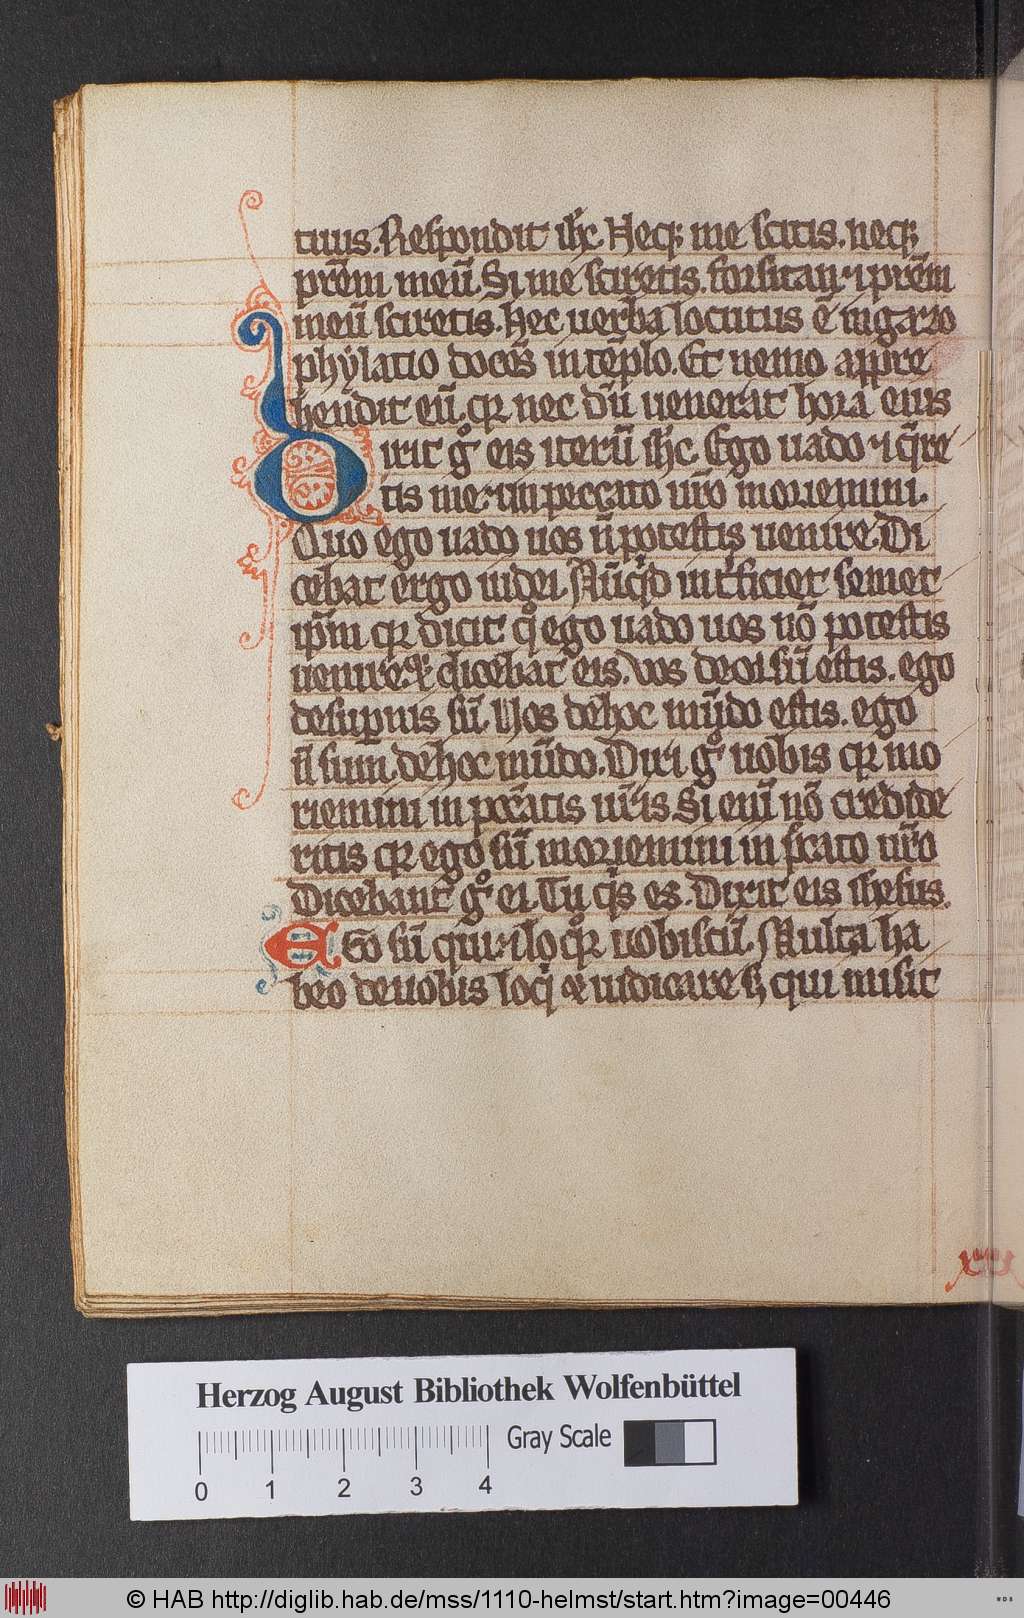 tuus. Respondit ihc̄. Neqꝫ me scitis. neqꝫ
pr̄em meū. Si me sciretis. forsitan ⁊ pr̄em
meū sciretis. Hec uerba locutus ē in gazo
phylatio doces̄ in tēplo. Et nemo appre
hendit eū. qꝛ nec dū uenerat hora eius
Dixit gͦ eis iterū ihc̄. Ego uado ⁊ q̄re
tis me. ⁊ in peccato ur̄o moriemini.
Quo ego uado uos n̄ potestis uenire. Di
cebat ergo iudei. Nūqͥd int̄ficiet semet
ip̄m qꝛ dicit. qͦ ego uado uos nō potestis
uenire. ⁊ dicebat eis. Vos deorsū estis. ego
desupnis sū. Vos de hoc mūdo estis. ego
n̄ sum de hoc mūdo. Dixi gͦ uobis qꝛ mo
riemini in pcc̄atis ur̄is. Si enī nō credide
ritis qꝛ ego sū moriemini in pc̄cato ur̄o
Dicebant gͦ ei. Tu qͥs es. Dixit eis ihesus.
EGo sū qui ⁊ loqͦꝛ uobiscū. Multa ha
beo de uobis loqͥ ⁊ iudicare sꝫ qui misit
Herzog August Bibliothek Wolfenbüttel
Gray Scale
0 1 2 3 4
© HAB http://diglib.hab.de/mss/1110-helmst/start.htm?image=00446